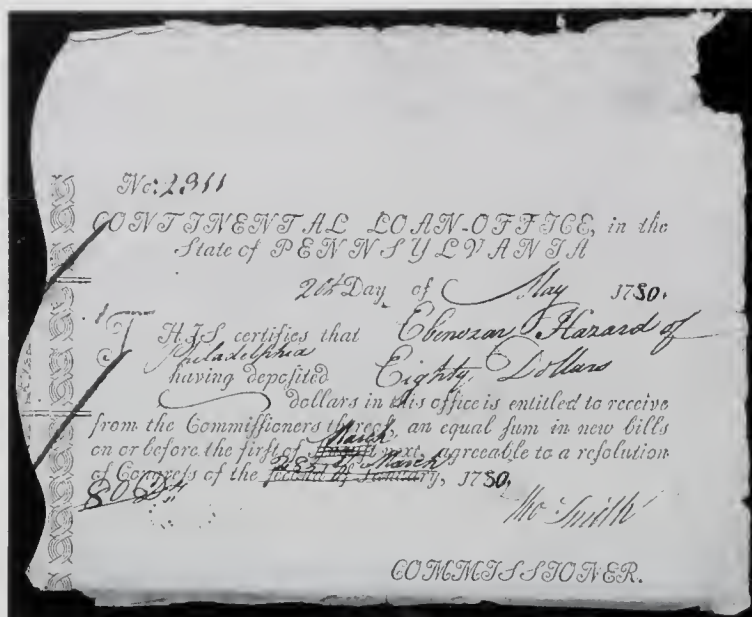 No: 2311
CONTINENTAL LOAN-OFFICE, in the
State of PENNSYLVANIA
20th Day of May 1780.
THIS certifies that Ebenezar Hazard of
Philadelphia
having deposited Eighty Dollars
dollars in this office is entitled to receive
from the Commissioners thereof, an equal sum in new bills
March
on or before the first of next, agreeable to a resolution
March
of Congress of the second of January, 1780.
80 Drs
Tho Smith
COMMISSIONER.